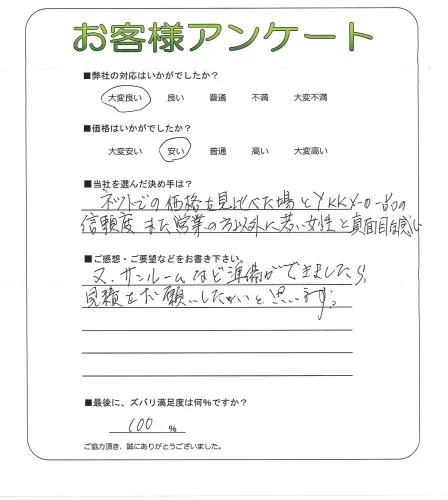 お客様アンケート
■弊社の対応はいかがでしたか?
大変良い 良い 普通 不満 大変不満
■価格はいかがでしたか?
大変安い 安い 普通 高い 大変高い
■当社を選んだ決め手は?
ネットでの価格を見比べた場とYKKメーカー品の
信頼度また営業の方以外に若い女性と真面目な感じ
■ご感想・ご要望などをお書き下さい。
又、サンルームなど準備ができましたら、
見積をお願いしたいと思います。
■最後に、ズバリ満足度は何%ですか?
100 %
ご協力頂き、誠にありがとうございました。